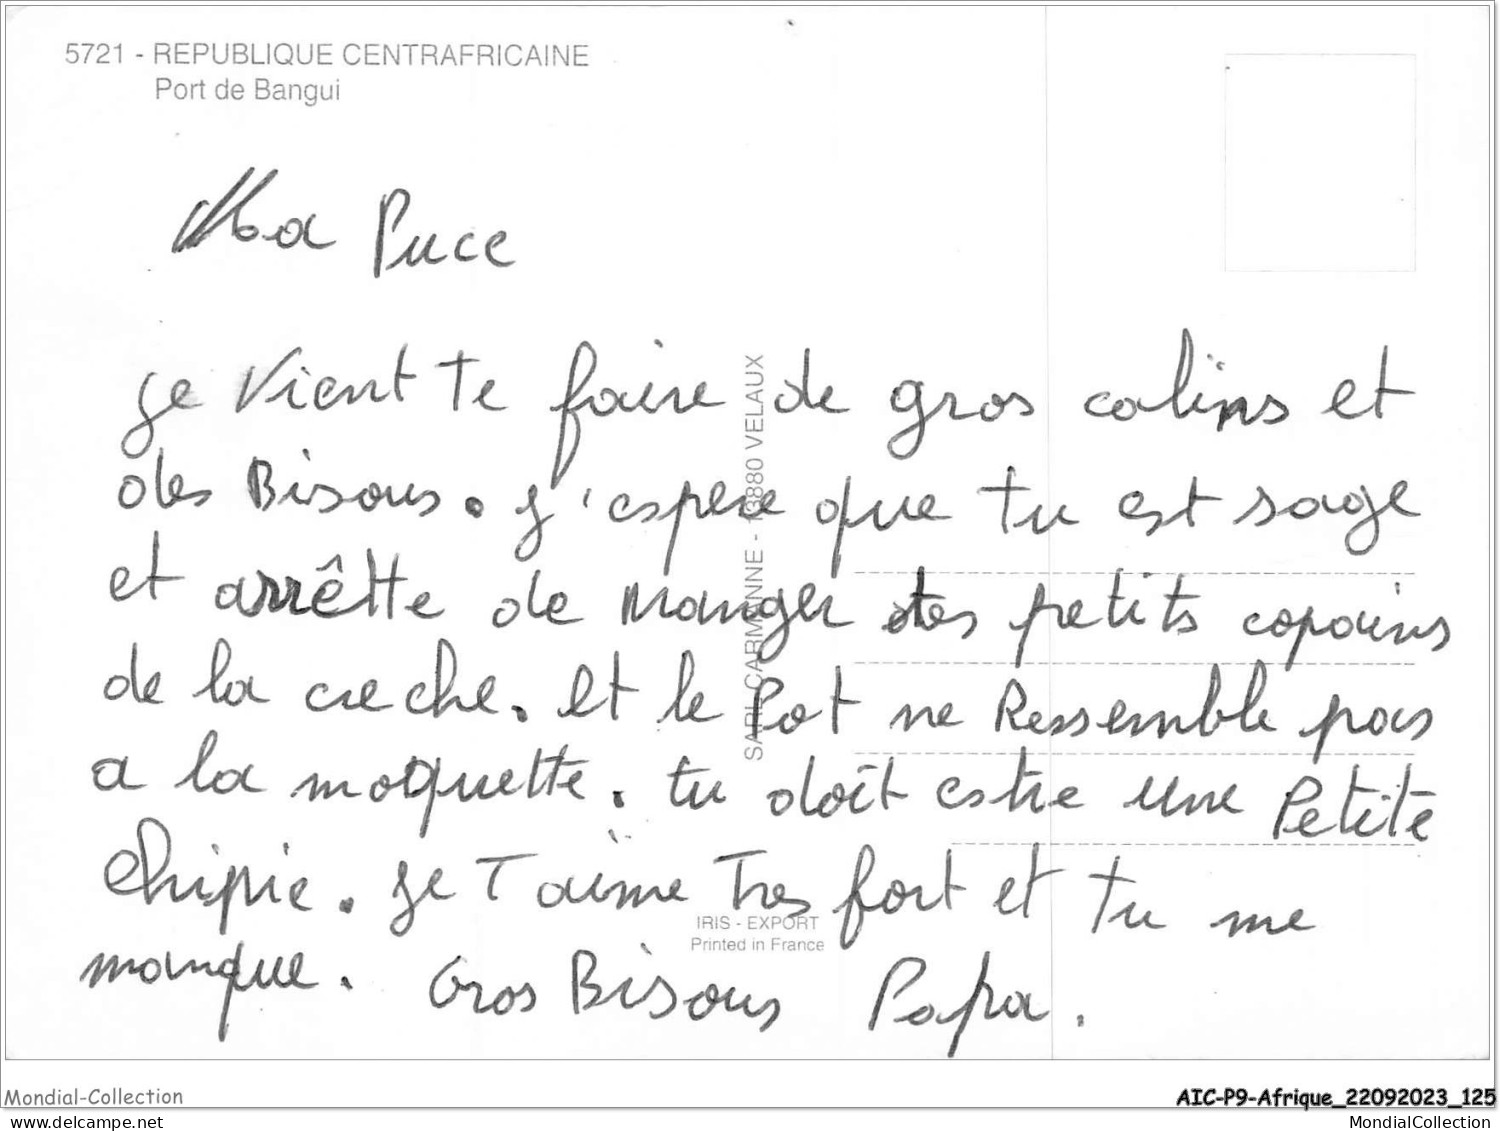 5721 - REPUBLIQUE CENTRAFRICAINE
Port de Bangui
Ma Puce
Je Vient te faire de gros calins et
des Bisous. J'espere que tu est sage
et arrêtte de manger des petits copains
de la creche. et le Pot ne Ressemble pas
a la moquette. tu doit estre une Petite
chipie. Je T aime Tres fort et tu me
manque. Gros Bisous Papa.
SARL CARMENNE - 13880 VELAUX
IRIS - EXPORT
Printed in France
Mondial-Collection
AIC-P9-Afrique_22092023_125
Mondialcollection.net
MondialCollection